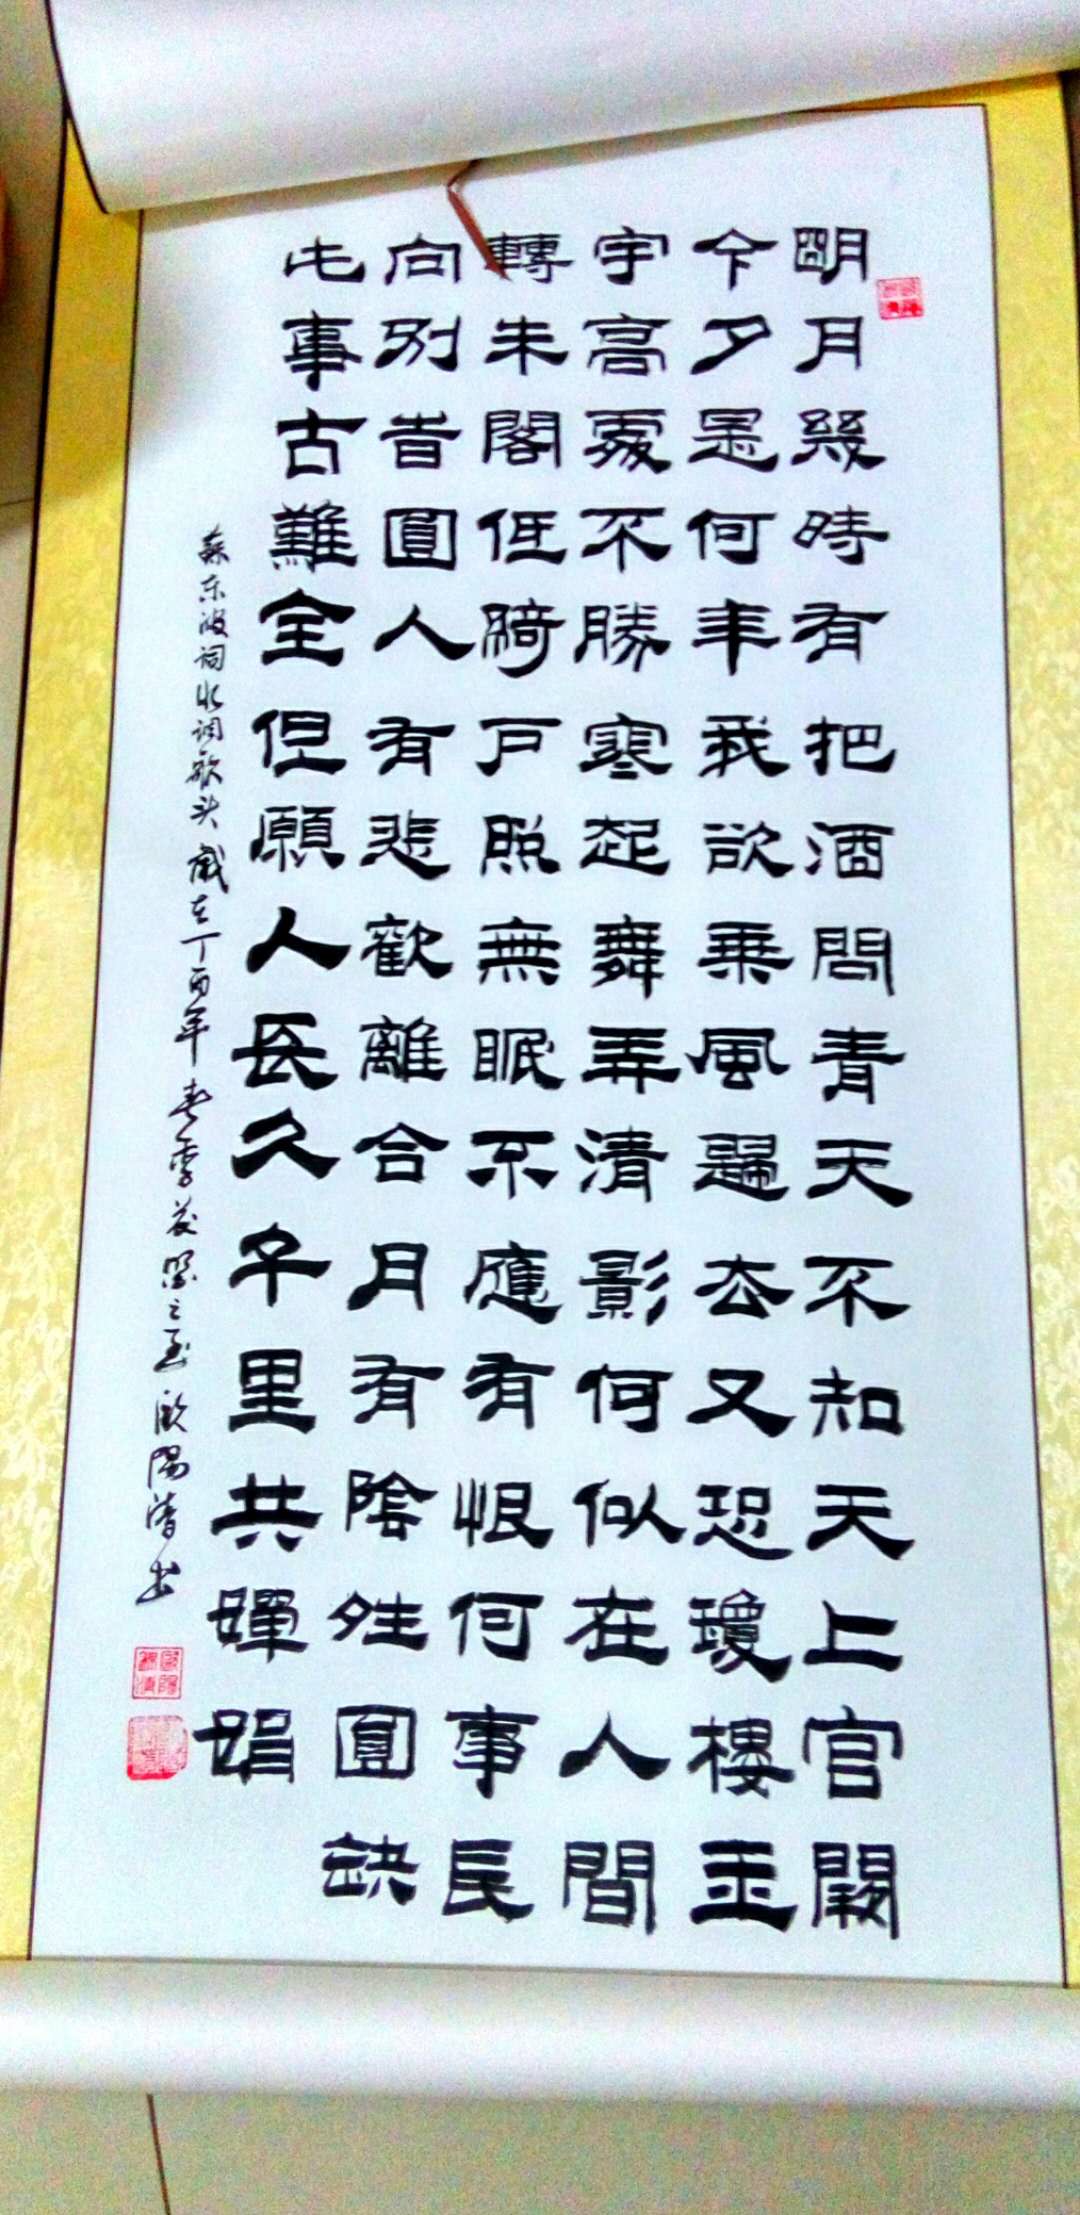 明月幾時有把酒問青天不知天上宫闕
今夕是何年我欲乘風歸去又恐瓊樓玉
宇高處不勝寒起舞弄清影何似在人間
轉朱閣低綺戶照無眠不應有恨何事長
向別旹圓人有悲歡離合月有陰夝圓缺
此事古難全但願人長久千里共嬋娟
蘇东坡词水调歌头歲在丁酉年春季 欧陽清书